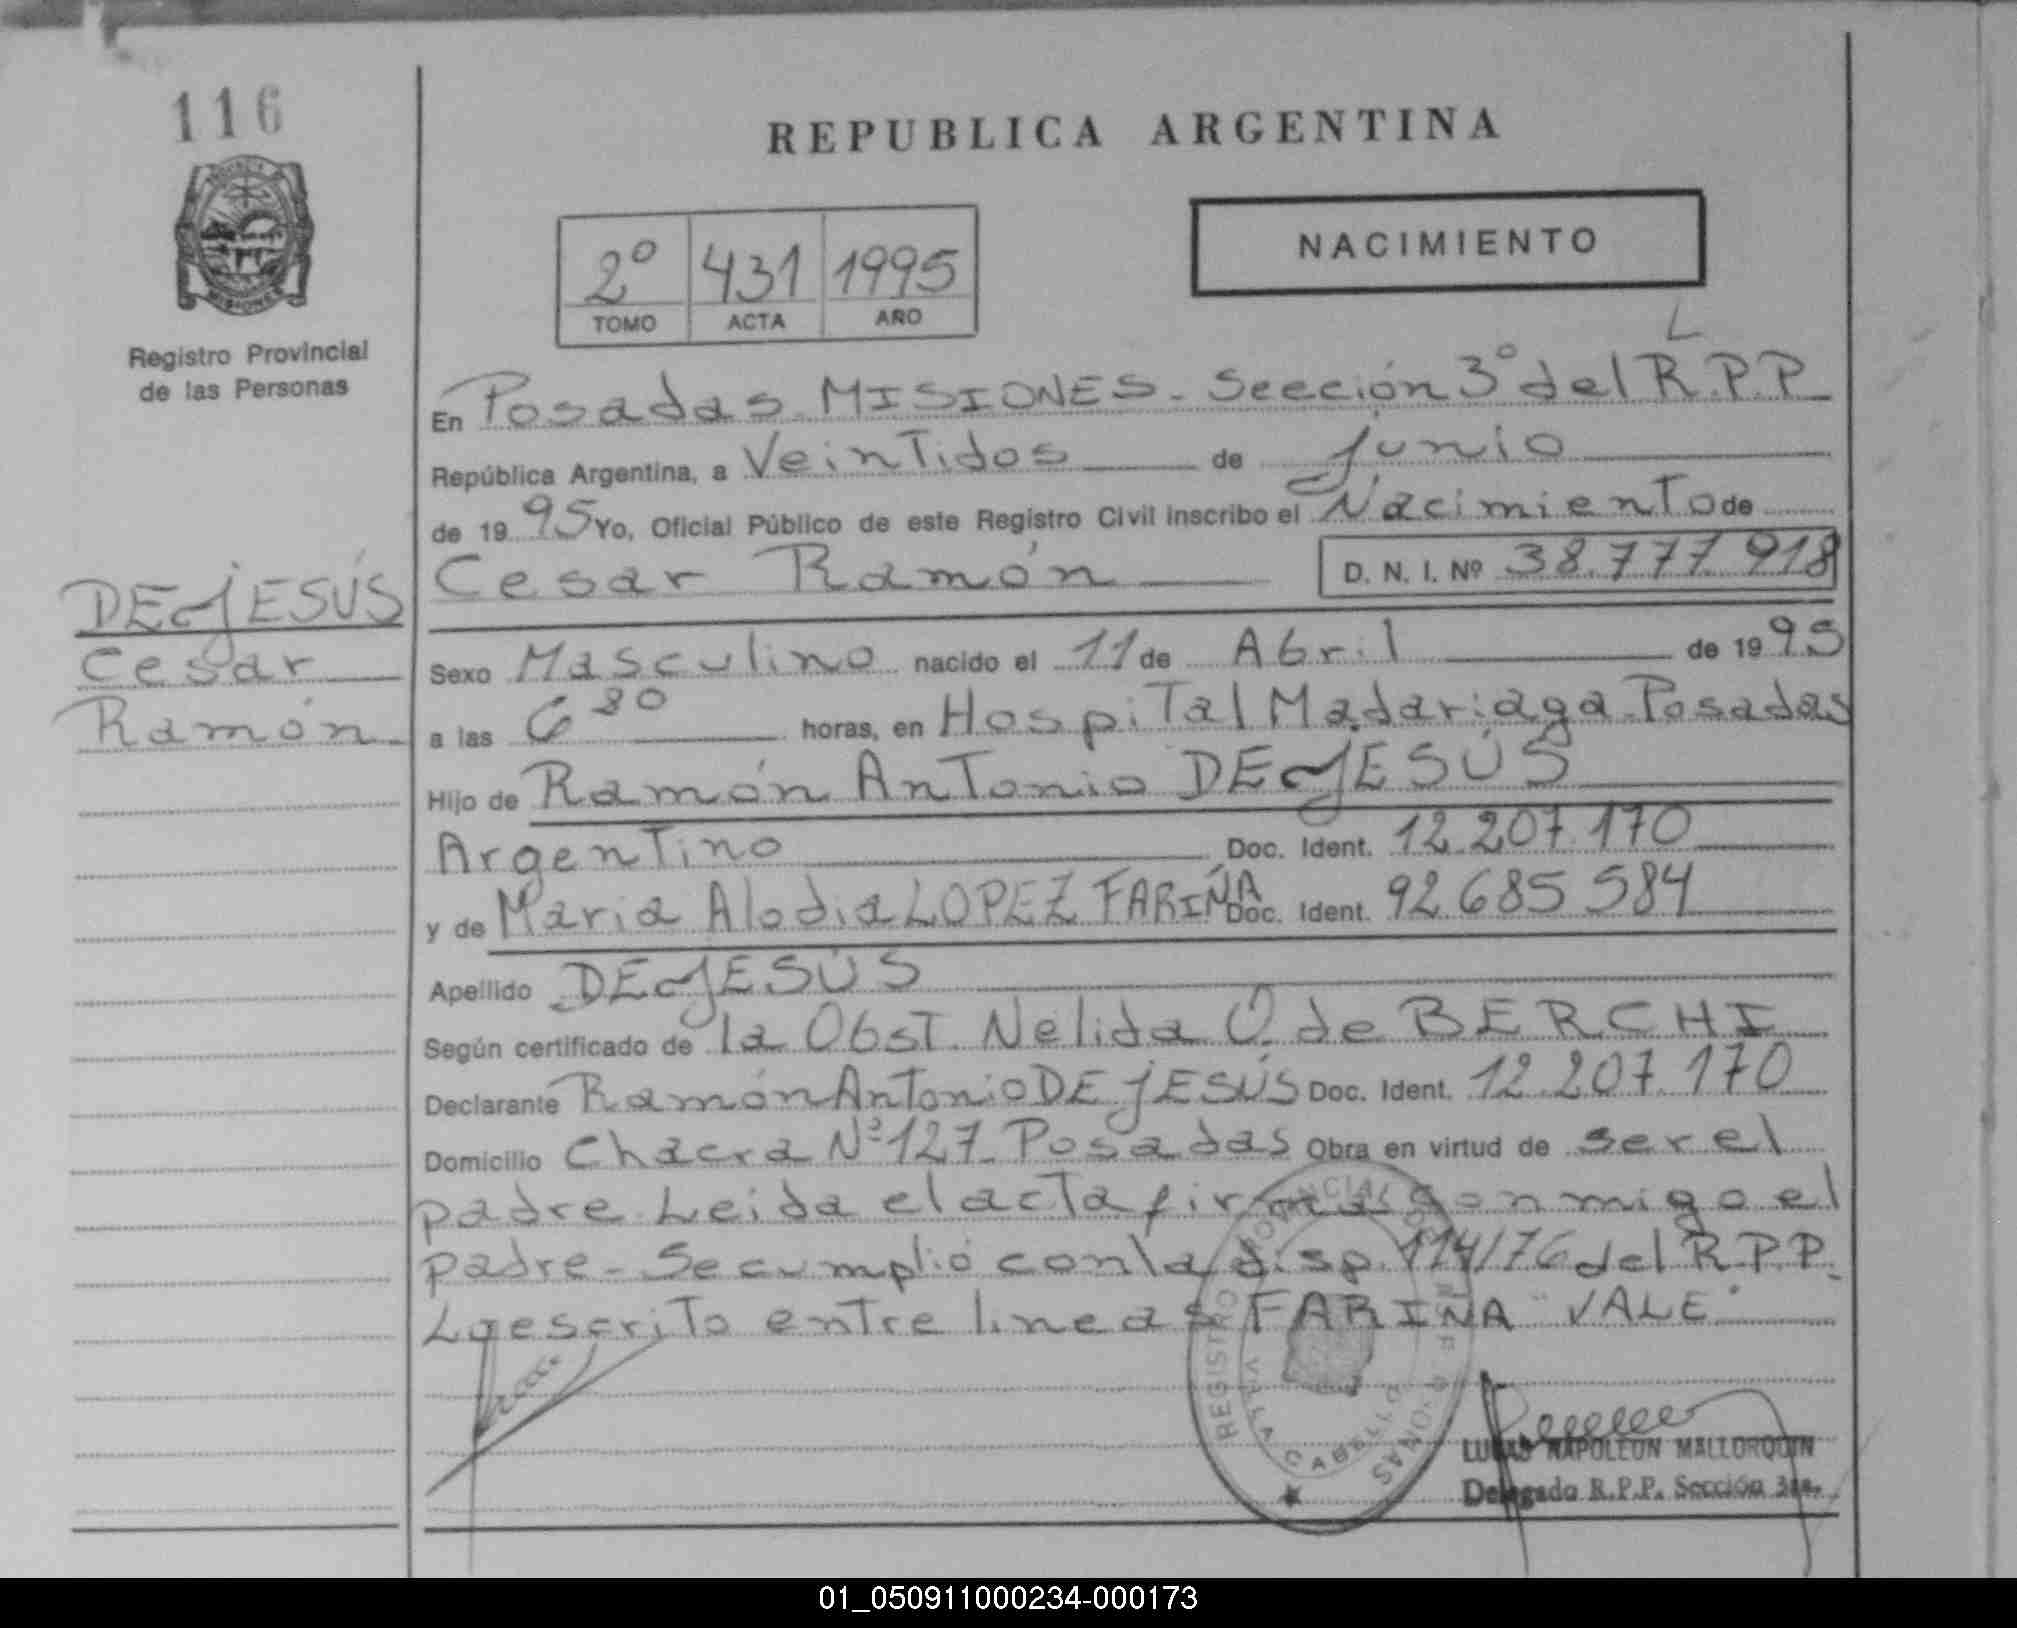 116
PROVINCIA DE
MISIONES
Registro Provincial
de las Personas
DE JESÚS
Cesar
Ramón
REPUBLICA ARGENTINA
2º 431 1995
TOMO ACTA AÑO
NACIMIENTO
L
En Posadas MISIONES - Sección 3º del R.P.P.
República Argentina, a Veintidos de junio
de 1995 Yo, Oficial Público de este Registro Civil inscribo el Nacimiento de
Cesar Ramón D. N. I. Nº 38.777.918
Sexo Masculino nacido el 11 de Abril de 1995
a las 6 horas, en Hospital Madariaga Posadas
Hijo de Ramón Antonio DE JESÚS
Argentino Doc. Ident. 12.207.170
y de Maria Alodia LOPEZ FARIÑA Doc. Ident. 92.685.584
Apellido DE JESÚS
Según certificado de la Obst. Nélida O. de BERCHI
Declarante Ramón Antonio DE JESÚS Doc. Ident. 12.207.170
Domicilio Chacra Nº 127 - Posadas Obra en virtud de ser el
padre. Leida el acta firma conmigo el
padre - Se cumplió con la disp. 114/76 del R.P.P.
Lo escrito entre lineas FARIÑA "VALE"
REGISTRO PROVINCIAL DE LAS PERSONAS
VILLA CABELLO
LUCAS NAPOLEON MALLORQUIN
Delegado R.P.P. Sección 3ra.
01_050911000234-000173